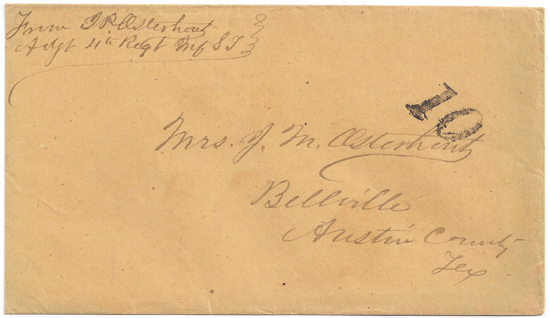 From J P Osterhout
Adjt 4th Regt Inf S T
10
Mrs. J. M. Osterhout
Bellville
Austin County
Tex